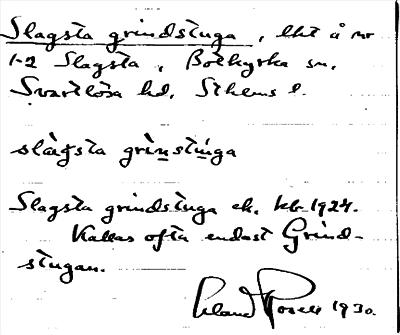 Slagsta grindstuga, lht å nr
1-2 Slagsta, Botkyrka sn,
Svartlösa hd, Sthlms l.
slàgsta grìnstùga
Slagsta grindstuga ek. kb. 1924.
Kallas ofta endast Grind-
stugan.
1930.